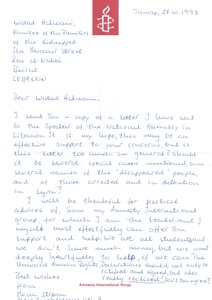 Tromsø, 28.10.1997
Widad Halwani,
Committee of the Families
of the Kidnapped
Street
Ras al-Nabeh
Beirut
LEBANON
Dear Widad Halwani,
I send you a copy of a letter I have sent
to the Speaker of the National Assembly in
Lebanon. It is my hope, this may be an
effective support to your concerns, but is
this letter too much in general? Should
it be several special cases mentioned, or
several names of the "disappeared" people,
and of those arrested and in detention
in Syria?
I will be thankful for practical
advices of, how my Amnesty International
group, for which I am the leader, and I
myself most effectively can offer you
support and help. We are all students, and
we don't have much money, but we want
deeply heartfully to help, if we can. The
Human Rights Declarations should not only be
ratified and signed, but also
really realized! Don't we agree?
Best wishes
from
Amnesty International Norge